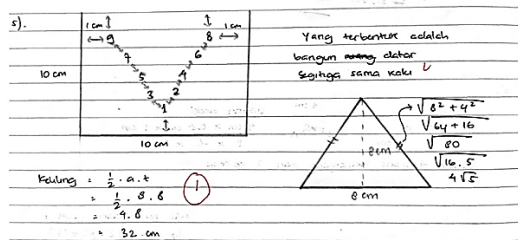 5).
1 cm
1 cm
9
8
7
6
5
4
3
2
1
10 cm
10 cm
Yang terbentuk adalah
bangun datar
segitiga sama kaki
√8² + 4²
√64 + 16
√80
√16 . 5
4√5
8 cm
8 cm
Keliling = 1/2 . a . t
= 1/2 . 8 . 8
= 4 . 8
= 32 cm
1